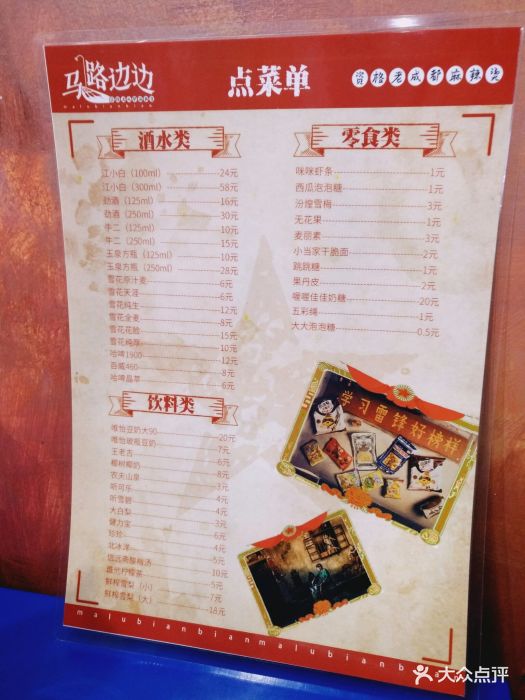 马路边边
malubianbian
点菜单
资格老成都麻辣烫
酒水类
江小白（100ml） 24元
江小白（300ml） 58元
劲酒（125ml） 16元
劲酒（250ml） 30元
牛二（125ml） 10元
牛二（250ml） 15元
玉泉方瓶（125ml） 10元
玉泉方瓶（250ml） 28元
雪花原汁麦 6元
雪花天涯 6元
雪花纯生 12元
雪花全麦 8元
雪花花脸 15元
雪花纯厚 10元
哈啤1900 12元
百威460 8元
哈啤晶萃 6元
饮料类
唯怡豆奶大90 20元
唯怡玻瓶豆奶 7元
王老吉 6元
椰树椰奶 8元
农夫山泉 3元
听可乐 4元
听雪碧 4元
大白梨 3元
健力宝 6元
珍珍 4元
北冰洋 5元
信远斋酸梅汤 10元
鲜榨雪梨（小） 7元
鲜榨雪梨（大） 18元
零食类
咪咪虾条 1元
西瓜泡泡糖 1元
汾煌雪梅 3元
无花果 1元
麦丽素 3元
小当家干脆面 2元
跳跳糖 1元
果丹皮 2元
喔喔佳佳奶糖 20元
五彩绳 1元
大大泡泡糖 0.5元
学习雷锋好榜样
malubianbianmalubianb
大众点评